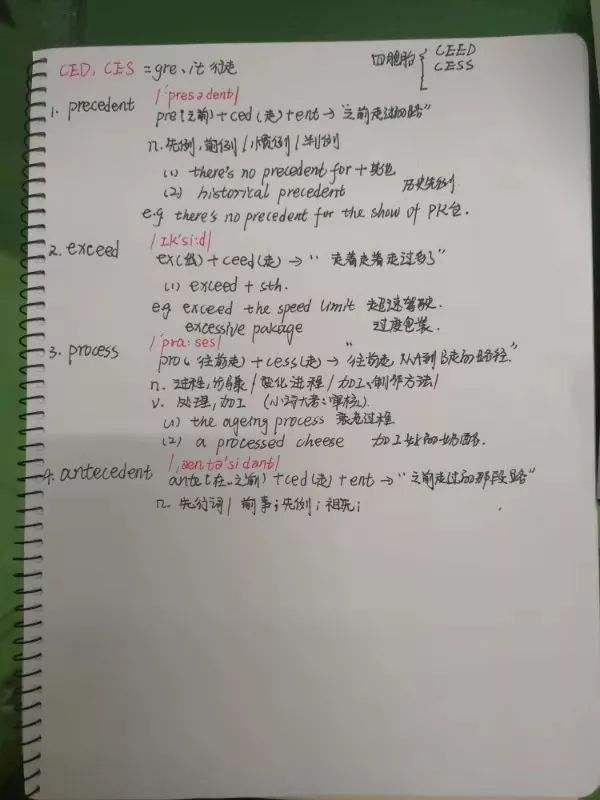 CED, CES = gre, it 行走
四胞胎 { CEED
CESS
1. precedent /ˈpresədənt/
pre(之前)+ced(走)+ent→"之前走过的路"
n. 先例,前例/惯例/判例
(1) there's no precedent for +其他
(2) historical precedent 历史先例
e.g there's no precedent for the show of PK台.
2. exceed /ɪkˈsiːd/
ex(出)+ceed(走)→"走着走着走过了"
(1) exceed + sth.
eg exceed the speed limit 超速驾驶.
excessive pakage 过度包装.
3. process /ˈprɑːses/
pro(往前走)+cess(走)→"往前走,从A到B走的路径"
n. 过程,步骤/变化进程/加工,制作方法/
v. 处理,加工 (审核)
(1) the ageing process 衰老过程
(2) a processed cheese 加工处的奶酪.
4. antecedent /ˌæntəˈsidənt/
ante(在..之前)+ced(走)+ent→"之前走过的那段路"
n. 先行词/前事;先例;祖先;